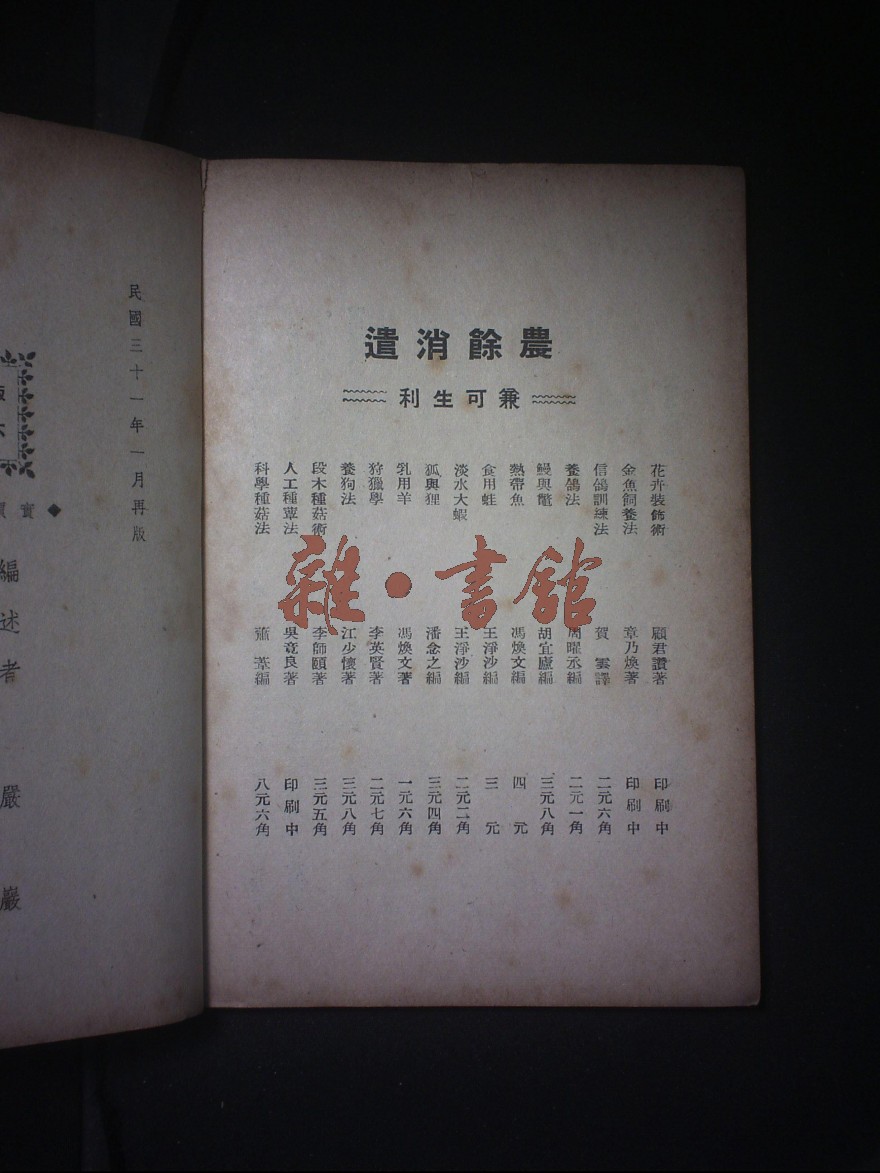 農餘消遣
兼可生利
花卉裝飾術 顧君讚著 印刷中
金魚飼養法 章乃煥著 印刷中
信鴿訓練法 賀雲譯 二元六角
養鴿法 周曜丞編 二元一角
鰻與鼈 胡宜廬編 三元八角
熱帶魚 馮煥文編 四元
食用蛙 王淨沙編 三元
淡水大蝦 王淨沙編 二元二角
狐與狸 潘念之編 三元四角
乳用羊 馮煥文著 一元六角
狩獵學 李英賢著 二元七角
養狗法 江少懷著 三元八角
段木種菇術 李師頤著 三元五角
人工種蕈法 吳竞良著 印刷中
科學種菇法 蕭葦編 八元六角
雜·書館
民國三十一年一月再版
◆實
編述者 嚴巖